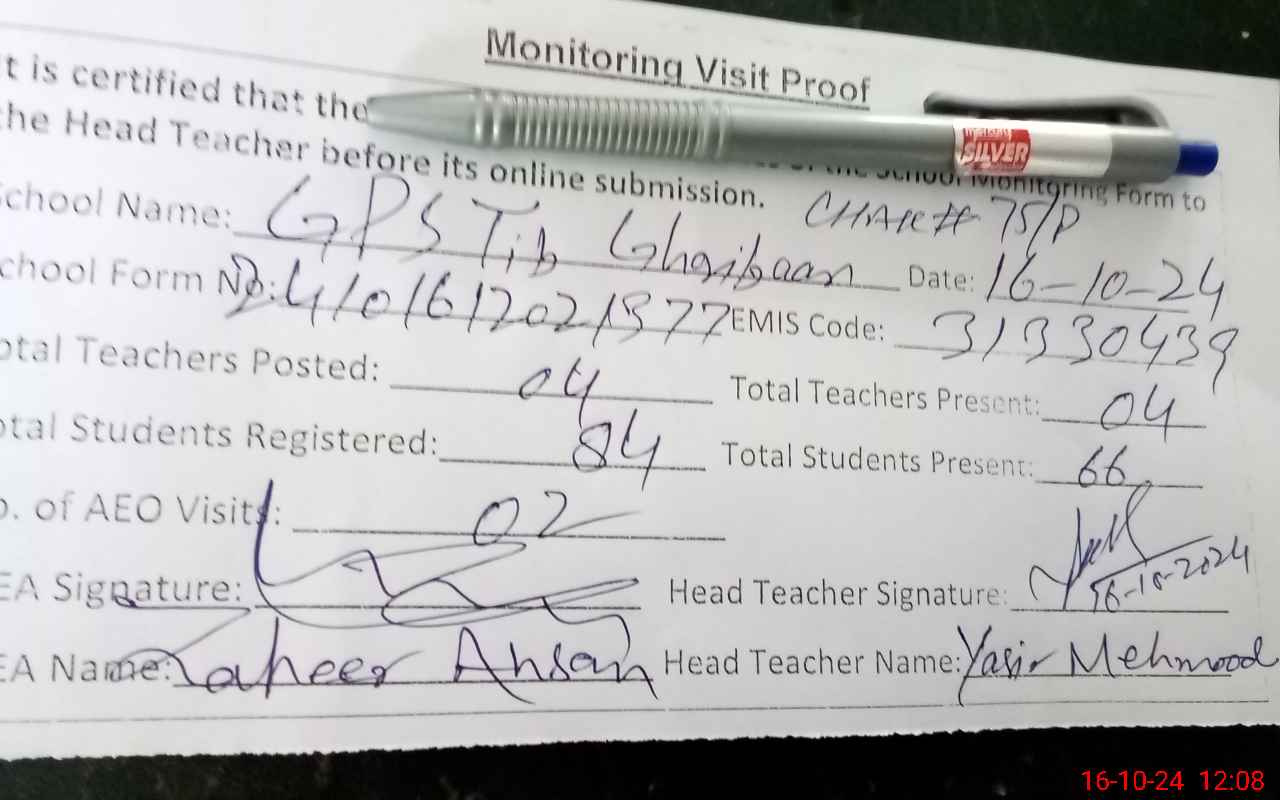 Monitoring Visit Proof
t is certified that the
the Head Teacher before its online submission. the School Monitoring Form to
mercury
SILVER
School Name: GPS Tib Ghaibaan CHAK # 75/P
Date: 16-10-24
chool Form No: 24101612021377 EMIS Code: 31330439
otal Teachers Posted: 04 Total Teachers Present: 04
otal Students Registered: 84 Total Students Present: 66
o. of AEO Visits: 02
EA Signature: Head Teacher Signature: 16-10-2024
EA Name: Zaheer Ahsan Head Teacher Name: Yasir Mehmood
16-10-24 12:08